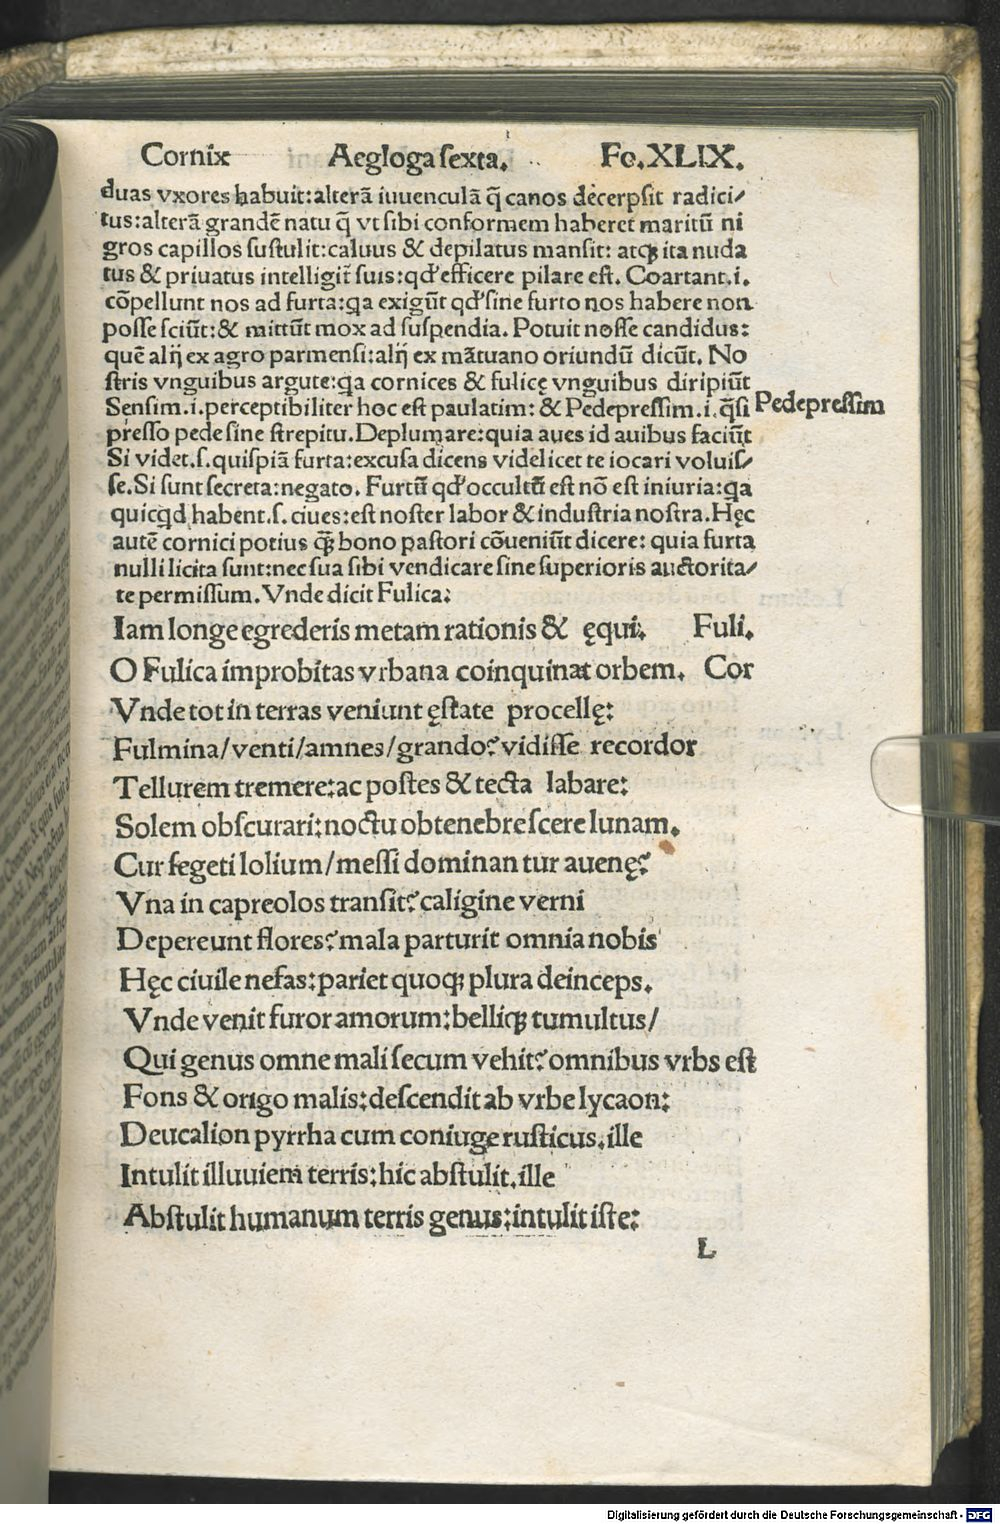 Cornix Aegloga sexta. Fo.XLIX.
duas vxores habuit:alterā iuuenculā q̄ canos decerpsit radici/
tus:alterā grandē natu q̄ vt sibi conformem haberet maritū ni
gros capillos sustulit:caluus & depilatus mansit: atqꝫ ita nuda
tus & priuatus intelligit̃ suis:qđ efficere pilare est. Coartant.i.
cōpellunt nos ad furta:qa exigūt qđ sine furto nos habere non
posse sciūt:& mittūt mox ad suspendia. Potuit nosse candidus:
quē alij ex agro parmensi:alij ex mātuano oriundū dicūt. No
stris vnguibus argute:qa cornices & fulicę vnguibus diripiūt
Sensim.i.perceptibiliter hoc est paulatim: & Pedepressim.i.q̄si
Pedepressim
presso pede sine strepitu.Deplumare:quia aues id auibus faciūt
Si videt.s.quispiā furta:excusa dicens videlicet te iocari voluis/
se.Si sunt secreta:negato. Furtū qđ occultū est nō est iniuria:qa
quicqd habent.s.ciues:est noster labor & industria nostra.Hęc
autē cornici potius qꝫ̄ bono pastori cōueniūt dicere: quia furta
nulli licita sunt:nec sua sibi vendicare sine superioris auctorita/
te permissum.Vnde dicit Fulica:
Iam longe egrederis metam rationis & ęqui. Fuli.
O Fulica improbitas vrbana coinquinat orbem. Cor
Vnde tot in terras veniunt ęstate procellę:
Fulmina/venti/amnes/grando? vidisse recordor
Tellurem tremere:ac postes & tecta labare:
Solem obscurari:noctu obtenebrescere lunam.
Cur segeti lolium/messi dominan tur auenę?
Vna in capreolos transit? caligine verni
Depereunt flores? mala parturit omnia nobis
Hęc ciuile nefas:pariet quoqꝫ plura deinceps.
Vnde venit furor amorum:belliqꝫ tumultus/
Qui genus omne mali secum vehit? omnibus vrbs est
Fons & origo malis:descendit ab vrbe lycaon:
Deucalion pyrrha cum coniuge rusticus.ille
Intulit illuuiem terris:hic abstulit.ille
Abstulit humanum terris genus:intulit iste:
L
Digitalisierung gefördert durch die Deutsche Forschungsgemeinschaft - DFG